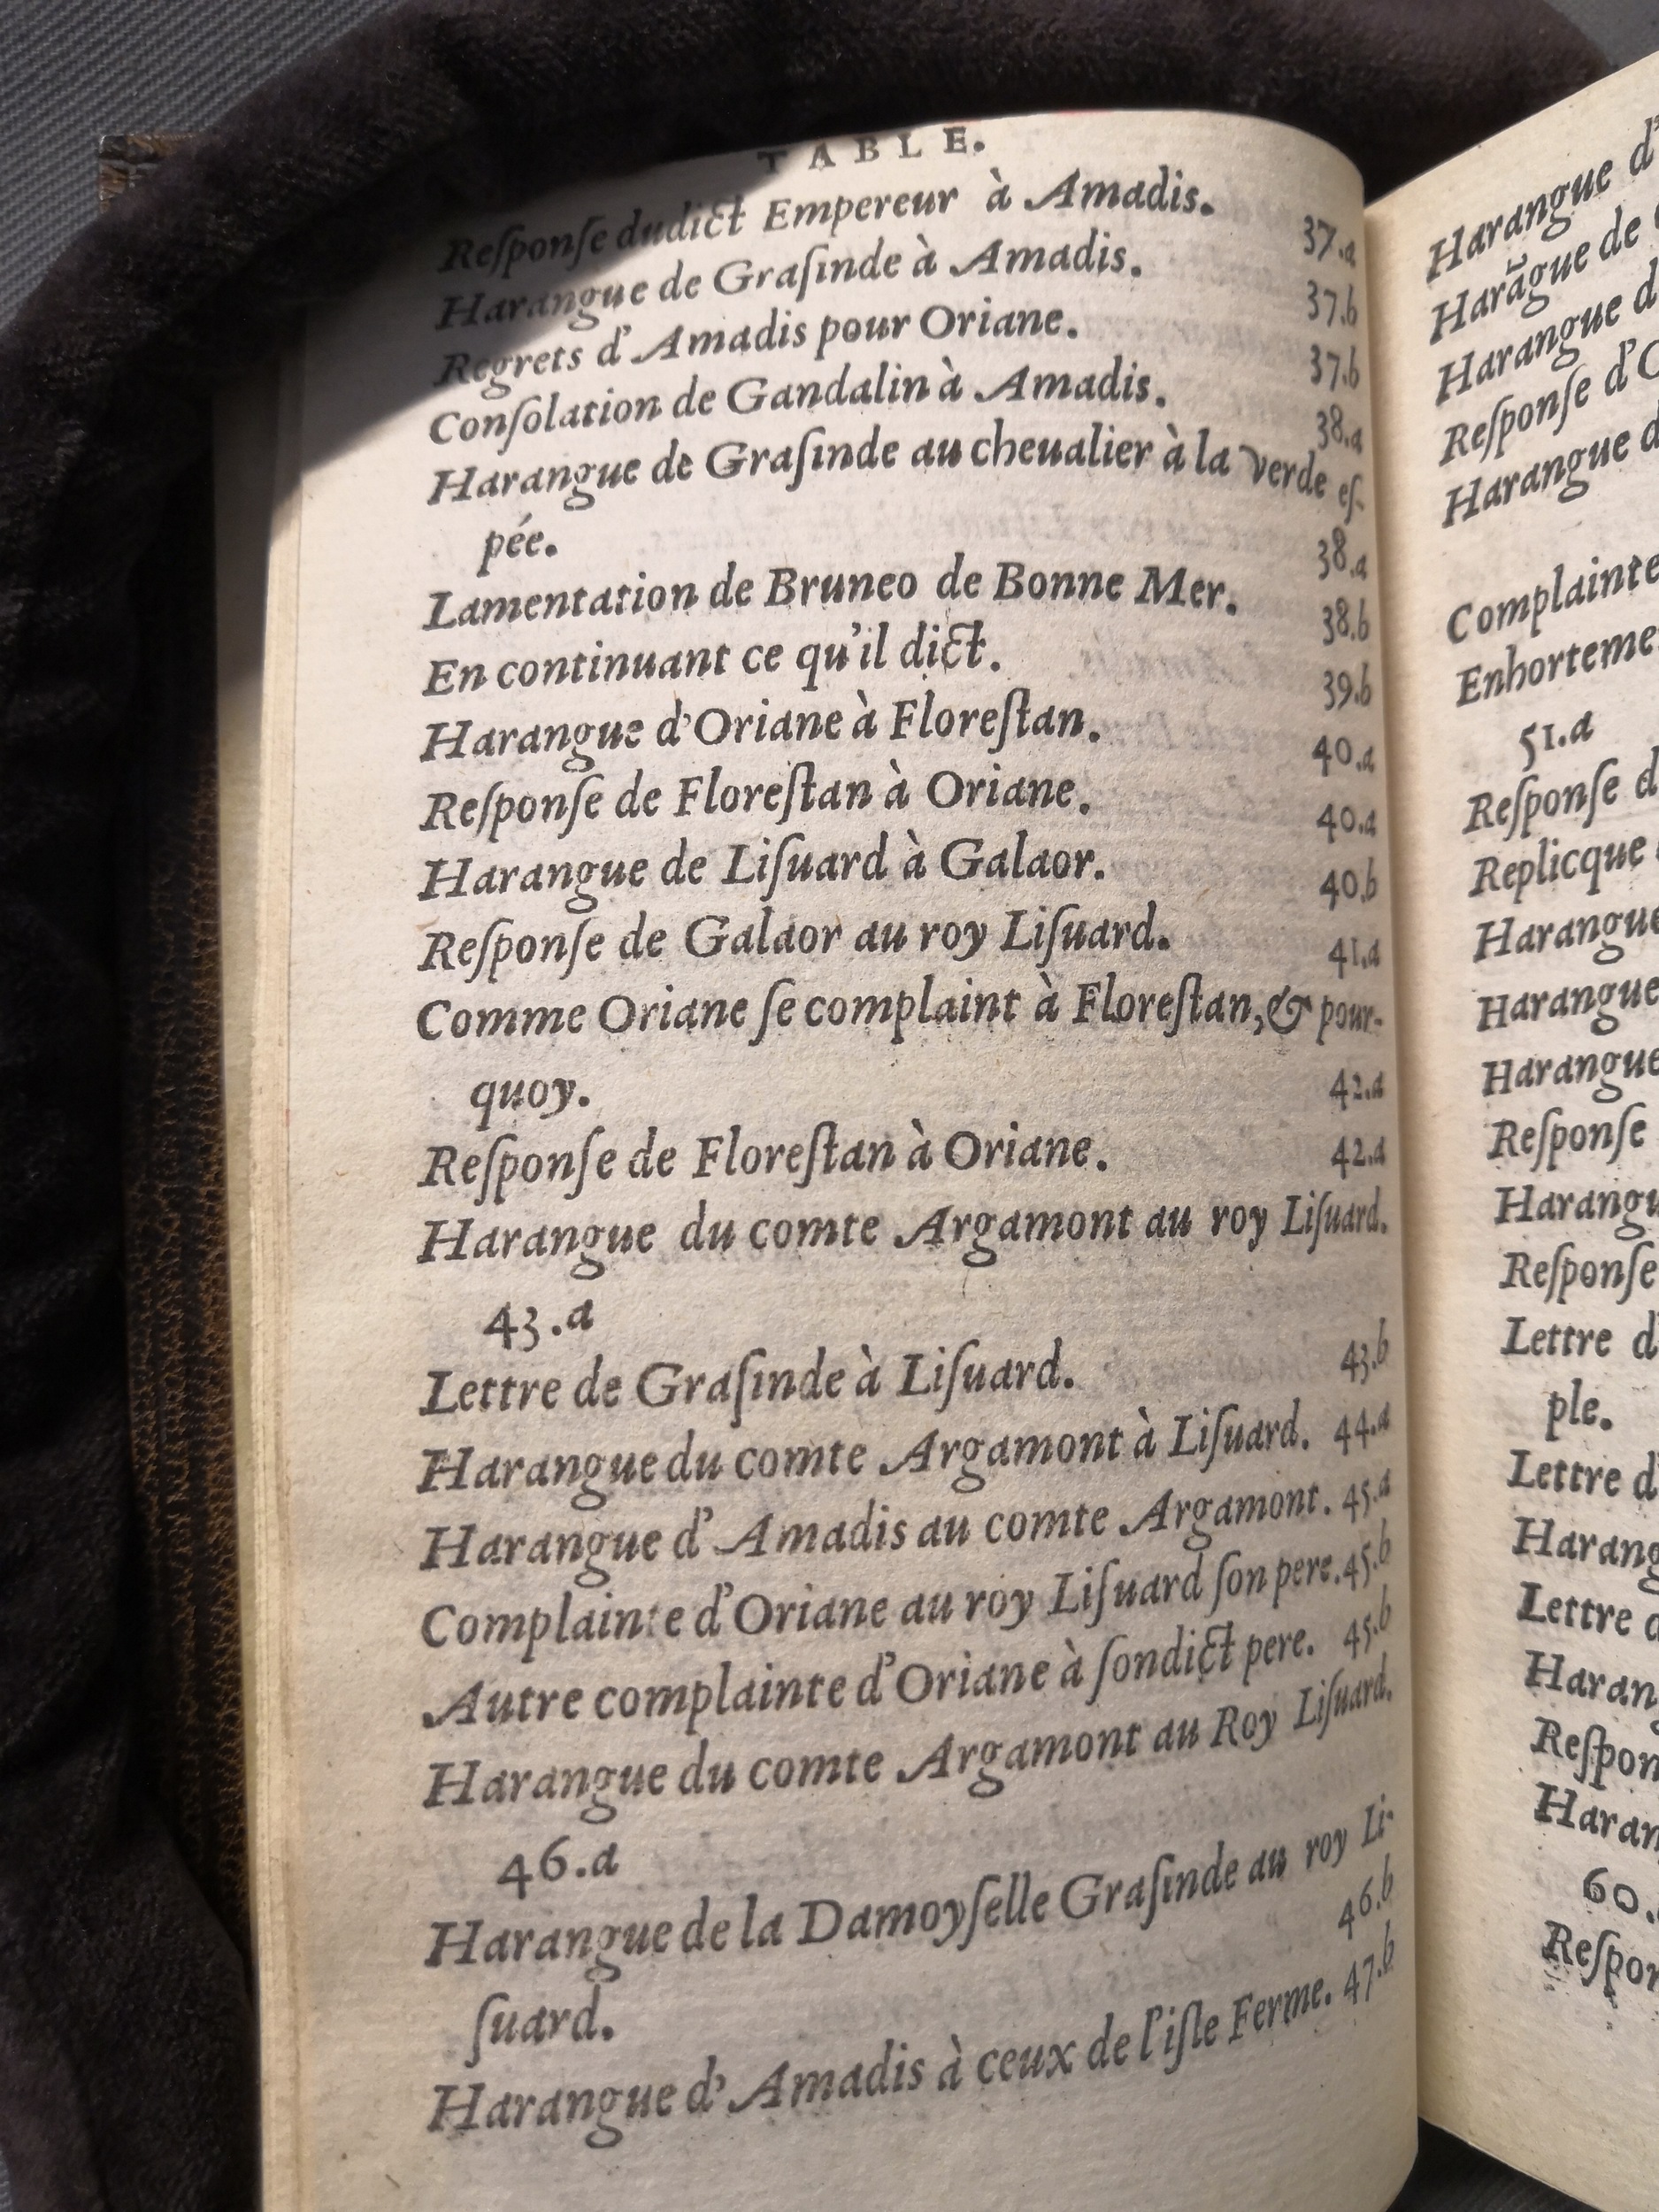 TABLE.
Reſponſe dudict Empereur à Amadis. 37.a
Harangue de Graſinde à Amadis. 37.b
Regrets d'Amadis pour Oriane. 37.b
Conſolation de Gandalin à Amadis. 38.a
Harangue de Graſinde au cheualier à la verde eſ-
pée. 38.a
Lamentation de Bruneo de Bonne Mer. 38.b
En continuant ce qu'il dict. 39.b
Harangue d'Oriane à Floreſtan. 40.a
Reſponſe de Floreſtan à Oriane. 40.a
Harangue de Liſuard à Galaor. 40.b
Reſponſe de Galaor au roy Liſuard. 41.a
Comme Oriane ſe complaint à Floreſtan, & pour-
quoy. 42.a
Reſponſe de Floreſtan à Oriane. 42.a
Harangue du comte Argamont au roy Liſuard.
43.a
Lettre de Graſinde à Liſuard. 43.b
Harangue du comte Argamont à Liſuard. 44.a
Harangue d'Amadis au comte Argamont. 45.a
Complainte d'Oriane au roy Liſuard ſon pere. 45.b
Autre complainte d'Oriane à ſondict pere. 45.b
Harangue du comte Argamont au Roy Liſuard.
46.a
Harangue de la Damoyſelle Graſinde au roy Li-
ſuard. 46.b
Harangue d'Amadis à ceux de l'iſle Ferme. 47.b
Harangue d'
Harãgue de
Harangue
Reſponſe d'O
Harangue
Complainte
Enhorteme
51.a
Reſponſe
Replicque
Harangue
Harangue
Harangue
Reſponſe
Harangu
Reſponſe
Lettre d
ple.
Lettre d
Harang
Lettre
Haran
Reſpon
Haran
60.
Reſpon